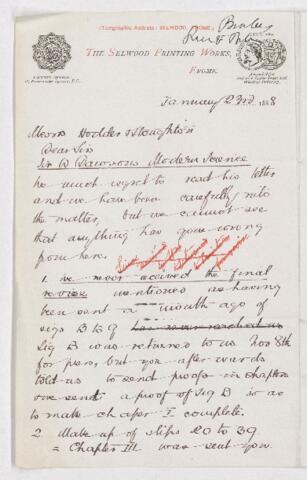 (Telegraphic Address: SELWOOD, FROME.)
THE SELWOOD PRINTING WORKS,
FROME.
January 23rd 1888
Messrs Hodder & Stoughton
Dear Sirs
Sir W Dawson's Modern Science
We much regret to read his letter
and we have been carefully into
the matter, but we cannot see
that anything has gone wrong
from here.
1. We never received the final
revise mentioned as having
been sent a month ago of
sigs B to G
Sig B was returned to us Nov 8th
for press, but you afterwards
told us to send proofs in chapters
we send a proof of Sig B so as
to make chapter I complete.
2. Make up of slips 20 to 39
= Chapter III was sent you